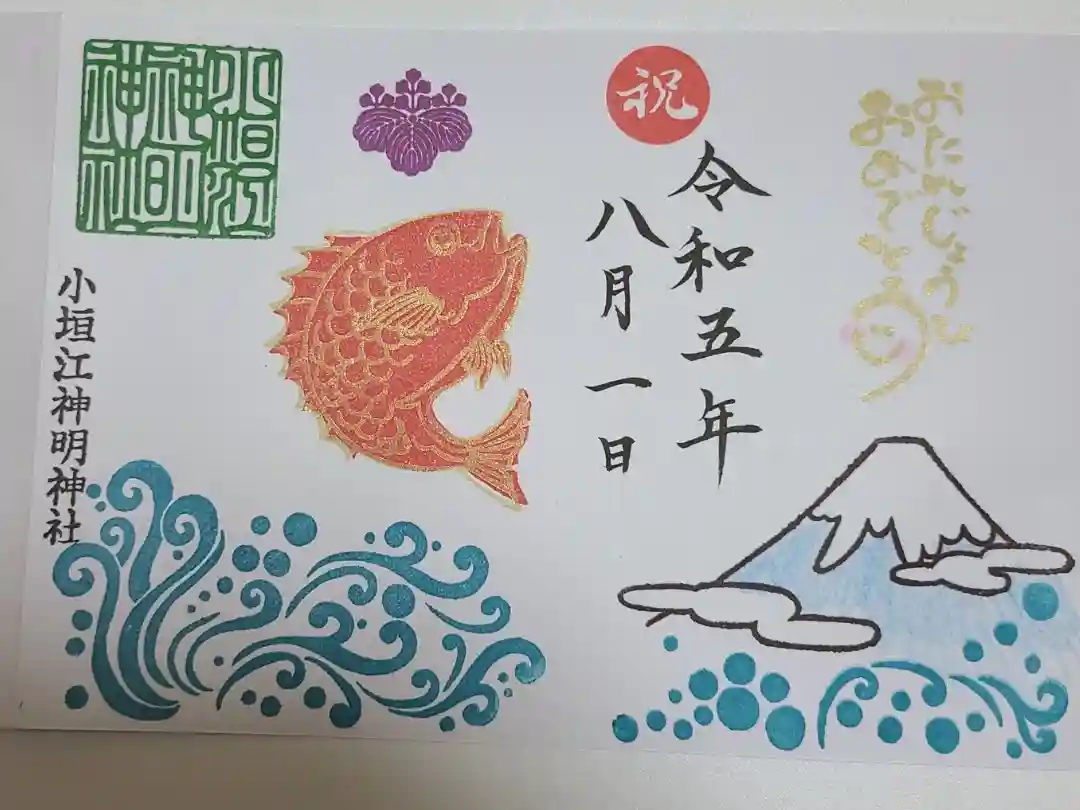 おたんじょうび
おめでとう
祝
令和五年
八月一日
小垣江
神明
神社
小垣江神明神社